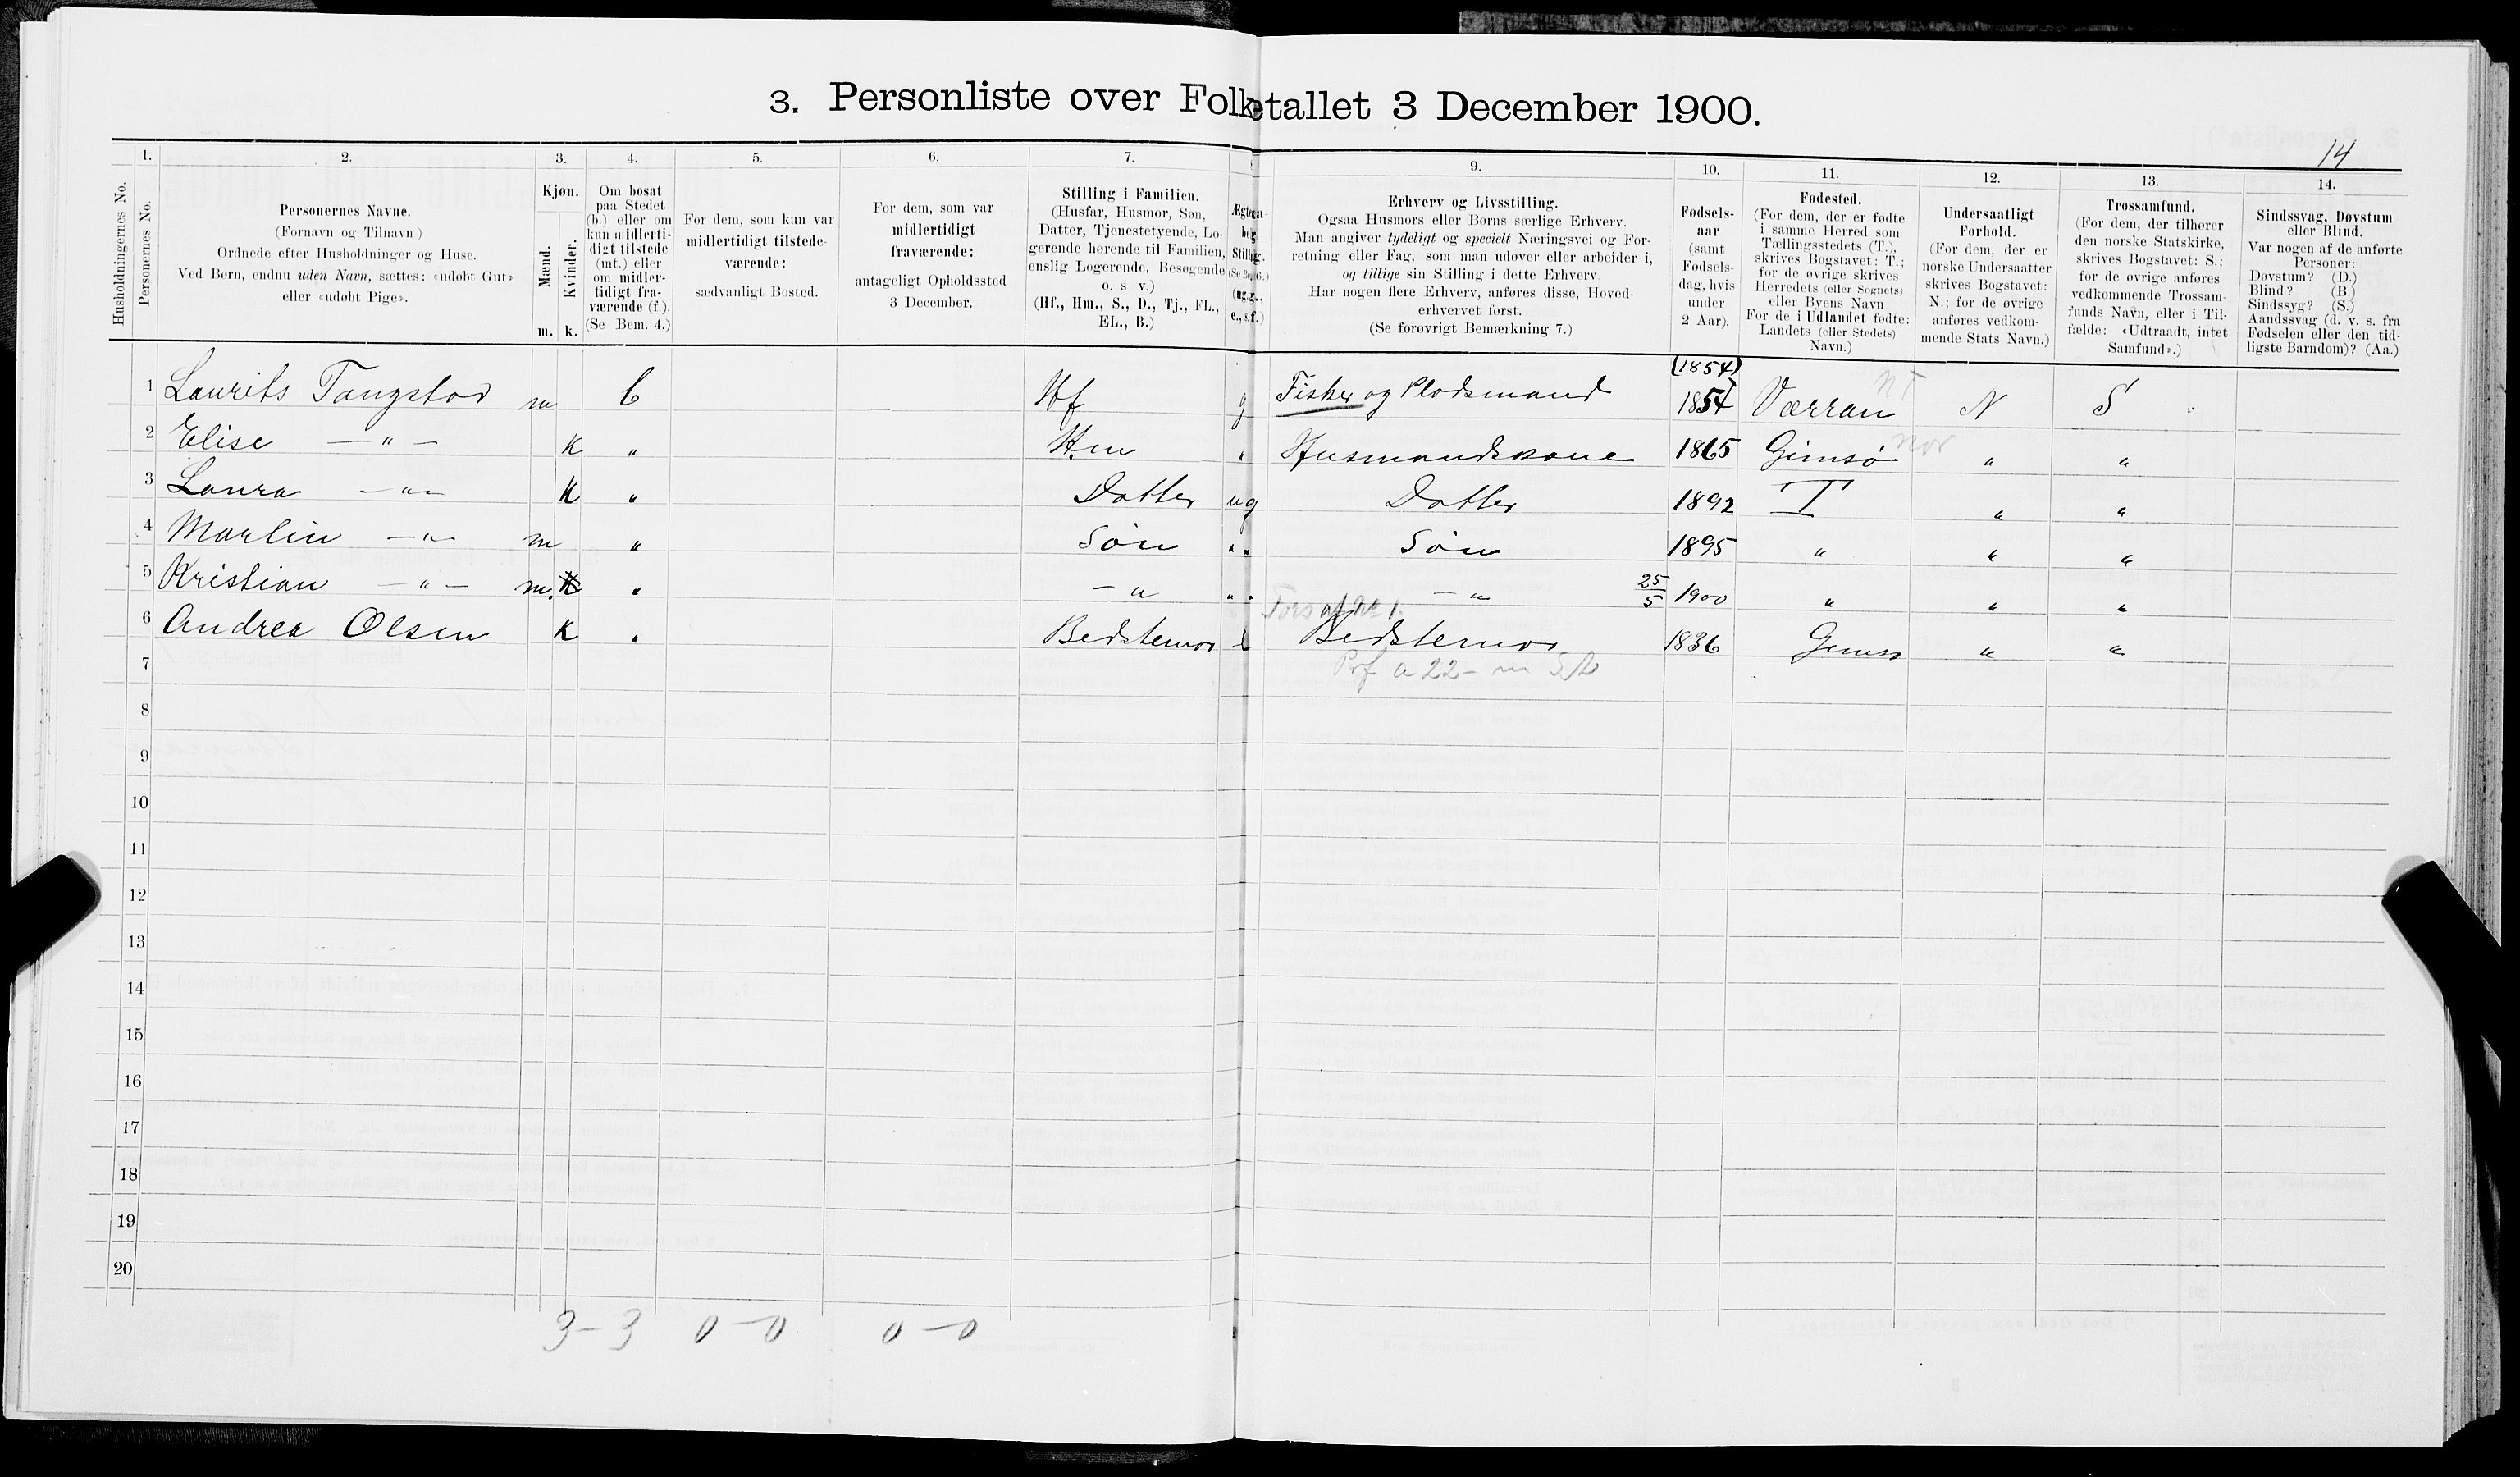 3. Personliste over Folketallet 3 December 1900.
14
1. 2. 3. 4. 5. 6. 7. 9. 10. 11. 12. 13. 14.
Husholdningernes No.
Personernes No.
Personernes Navne.
(Fornavn og Tilnavn)
Ordnede efter Husholdninger og Huse.
Ved Børn, endnu uden Navn, sættes: «udøbt Gut»
eller «udøbt Pige».
Kjøn.
Mænd.
Kvinder.
m. k.
Om bosat
paa Stedet
(b.) eller om
kun midlerti-
digt tilstede
(mt.) eller
om midler-
tidigt fra-
værende (f.).
(Se Bem. 4.)
For dem, som kun var
midlertidigt tilstede-
værende:
sædvanligt Bosted.
For dem, som var
midlertidigt
fraværende:
antageligt Opholdssted
3 December.
Stilling i Familien.
(Husfar, Husmor, Søn,
Datter, Tjenestetyende, Lo-
gerende hørende til Familien,
enslig Logerende, Besøgende
o. s v.)
(Hf., Hm., S., D., Tj., FL.,
EL., B.)
(ug.g.,
e.,s.f.)
Erhverv og Livsstilling.
Ogsaa Husmors eller Børns særlige Erhverv.
Man angiver tydeligt og specielt Næringsvei og For-
retning eller Fag, som man udøver eller arbeider i,
og tillige sin Stilling i dette Erhverv.
Har nogen flere Erhverv, anføres disse, Hoved-
erhvervet først.
(Se forøvrigt Bemærkning 7.)
Fødsels-
aar
(samt
Fødsels-
dag, hvis
under
2 Aar).
Fødested.
(For dem, der er fødte
i samme Herred som
Tællingsstedets (T.),
skrives Bogstavet: T.;
for de øvrige skrives
Herredets (eller Sognets)
eller Byens Navn
For de i Udlandet fødte:
Landets (eller Stedets)
Navn.)
Undersaatligt
Forhold.
(For dem, der er
norske Undersaatter
skrives Bogstavet:
N.; for de øvrige
anføres vedkom-
mende Stats Navn.)
Trossamfund.
(For dem, der tilhører
den norske Statskirke,
skrives Bogstavet: S.;
for de øvrige anføres
vedkommende Trossam-
funds Navn, eller i Til-
fælde: «Udtraadt, intet
Samfund».)
Sindssvag, Døvstum
eller Blind.
Var nogen af de anførte
Personer:
Døvstum? (D.)
Blind? (B.)
Sindssyg? (S.)
Aandssvag (d. v. s. fra
Fødselen eller den tid-
ligste Barndom)? (Aa.)
(1854)
1 Laurits Tangstad m b Hf g Fisker og Pladsmand 1854 Værran NT N S
2 Elise — " — K " Hm " Husmandskone 1865 Gimsø Nor " "
3 Laura — " — K " Datter ug Datter 1892 T " "
4 Martin — " — m " Søn " " Søn 1895 " " "
5 Kristian — " — m. K " — " " " — " 25/5 1900 " " "
Fors af No 1.
6 Andrea Olsen K " Bedstemor Bedstemor 1836 Gimsø " "
7
8
9
10
11
12
13
14
15
16
17
18
19
20
3 – 3 0 – 0 0 – 0